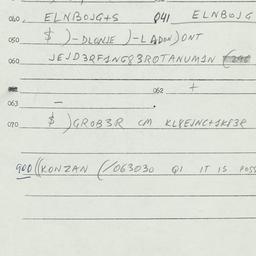 040. ELNBOJG+S 041 ELNBOJG
050 $ )-DLONJE )-LADON)ONT
060 JEJD3RF1NG83ROTANUM1N
062 +
063 — .
070 $ )GROB3R CM KL8EJNC+1K83R
900 ((KONZAN (/063030 QI IT IS POSS